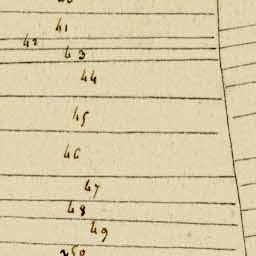 41
42
43
44
45
46
47
48
49
50